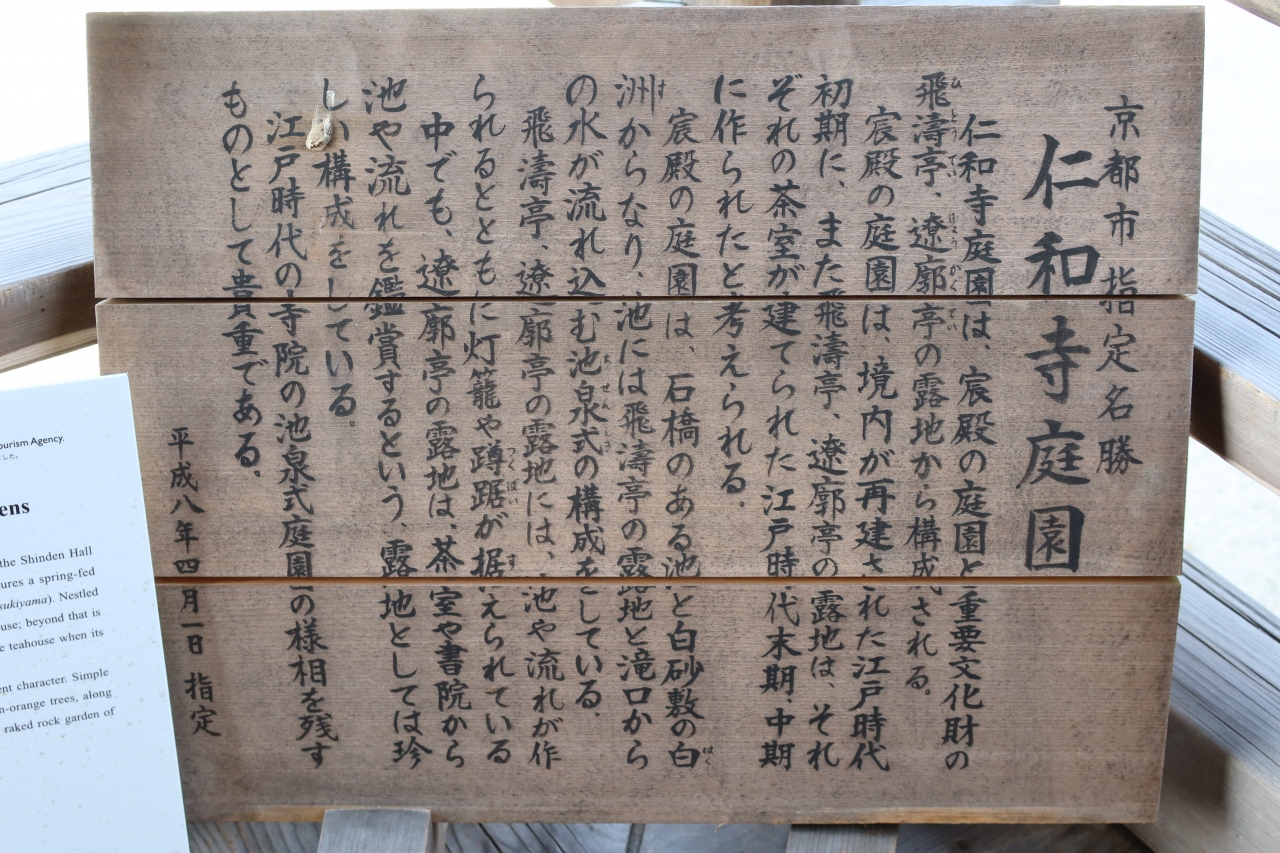 京都市指定名勝
仁和寺庭園
仁和寺庭園は、宸殿の庭園と重要文化財の
飛濤亭、遼廓亭の露地から構成される。
ひとうてい りょうかくてい
宸殿の庭園は、境内が再建された江戸時代
初期に、また飛濤亭、遼廓亭の露地は、それ
ぞれの茶室が建てられた江戸時代末期、中期
に作られたと考えられる。
宸殿の庭園は、石橋のある池と白砂敷の白
はく
洲からなり、池には飛濤亭の露地と滝口から
す
の水が流れ込む池泉式の構成をしている。
ちせんしき
飛濤亭、遼廓亭の露地には、池や流れが作
られるとともに灯籠や蹲踞が据えられている
つくばい す
中でも、遼廓亭の露地は、茶室や書院から
池や流れを鑑賞するという、露地としては珍
しい構成をしている。
江戸時代の寺院の池泉式庭園の様相を残す
ものとして貴重である。
平成八年四月一日 指定
ourism Agency.
した。
ens
the Shinden Hall
ures a spring-fed
sukiyama). Nestled
use; beyond that is
e teahouse when its
ent character. Simple
n-orange trees, along
raked rock garden of